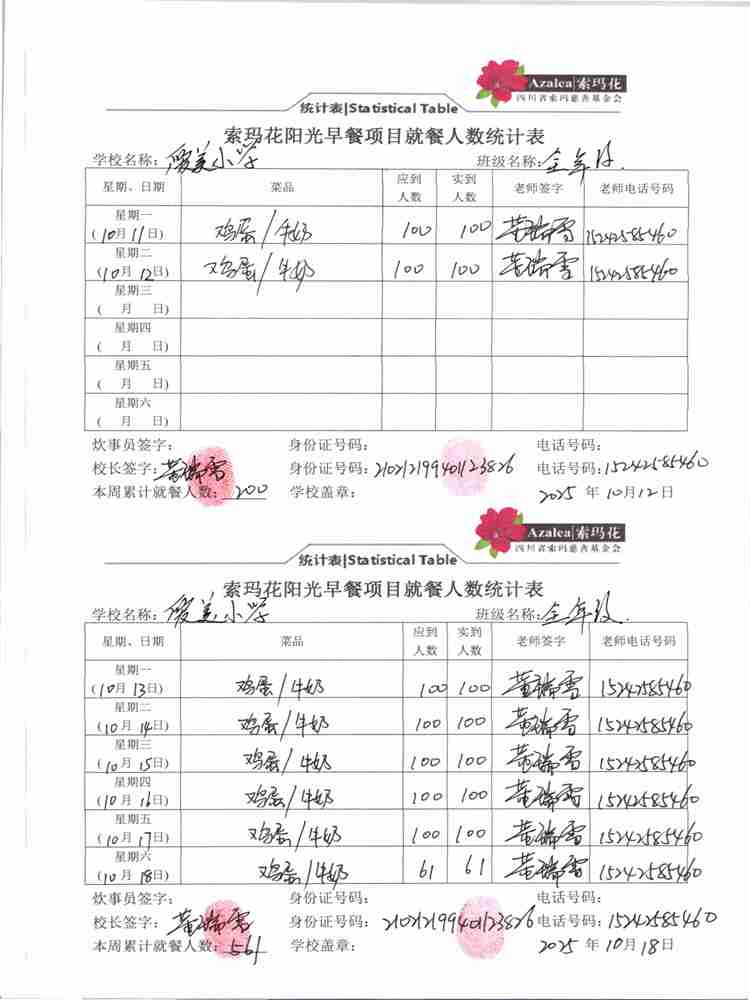 Azalea 索玛花
四川省索玛慈善基金会
统计表|Statistical Table
索玛花阳光早餐项目就餐人数统计表
学校名称: 爱美小学 班级名称: 全年级.
星期、日期 菜品 应到人数 实到人数 老师签字 老师电话号码
星期一
(10月11日) 鸡蛋/牛奶 100 100 董瑞雪 15242585460
星期二
(10月12日) 鸡蛋/牛奶 100 100 董瑞雪 15242585460
星期三
( 月 日)
星期四
( 月 日)
星期五
( 月 日)
星期六
( 月 日)
炊事员签字: 身份证号码: 电话号码:
校长签字: 董瑞雪 身份证号码: 210212199401123826 电话号码: 15242585460
本周累计就餐人数: 200 学校盖章: 2025 年 10月12日
Azalea 索玛花
四川省索玛慈善基金会
统计表|Statistical Table
索玛花阳光早餐项目就餐人数统计表
学校名称: 爱美小学 班级名称: 全年级.
星期、日期 菜品 应到人数 实到人数 老师签字 老师电话号码
星期一
(10月13日) 鸡蛋/牛奶 100 100 董瑞雪 15242585460
星期二
(10月14日) 鸡蛋/牛奶 100 100 董瑞雪 15242585460
星期三
(10月15日) 鸡蛋/牛奶 100 100 董瑞雪 15242585460
星期四
(10月16日) 鸡蛋/牛奶 100 100 董瑞雪 15242585460
星期五
(10月17日) 鸡蛋/牛奶 100 100 董瑞雪 15242585460
星期六
(10月18日) 鸡蛋/牛奶 61 61 董瑞雪 15242585460
炊事员签字: 身份证号码: 电话号码:
校长签字: 董瑞雪 身份证号码: 210212199401123826 电话号码: 15242585460
本周累计就餐人数: 561 学校盖章: 2025 年 10月18日